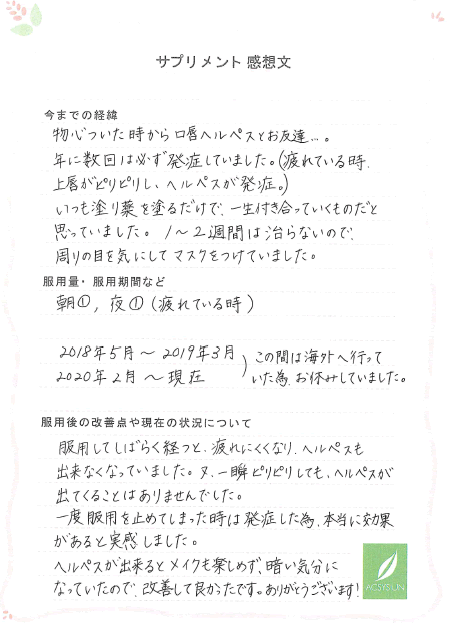 サプリメント 感想文
今までの経緯
物心ついた時から口唇ヘルペスとお友達…。
年に数回は必ず発症していました。(疲れている時、
上唇がピリピリし、ヘルペスが発症。)
いつも塗り薬を塗るだけで、一生付き合っていくものだと
思っていました。1〜2週間は治らないので、
周りの目を気にしてマスクをつけていました。
服用量・服用期間など
朝①、夜①(疲れている時)
2018年5月〜2019年3月
2020年2月〜現在
)この間は海外へ行って
いた為、お休みしていました。
服用後の改善点や現在の状況について
服用してしばらく経つと、疲れにくくなり、ヘルペスも
出来なくなっていました。又、一瞬ピリピリしても、ヘルペスが
出てくることはありませんでした。
一度服用を止めてしまった時は発症した為、本当に効果
があると実感しました。
ヘルペスが出来るとメイクも楽しめず、暗い気分に
なっていたので、改善して良かったです。ありがとうございます!
ACSYSUN